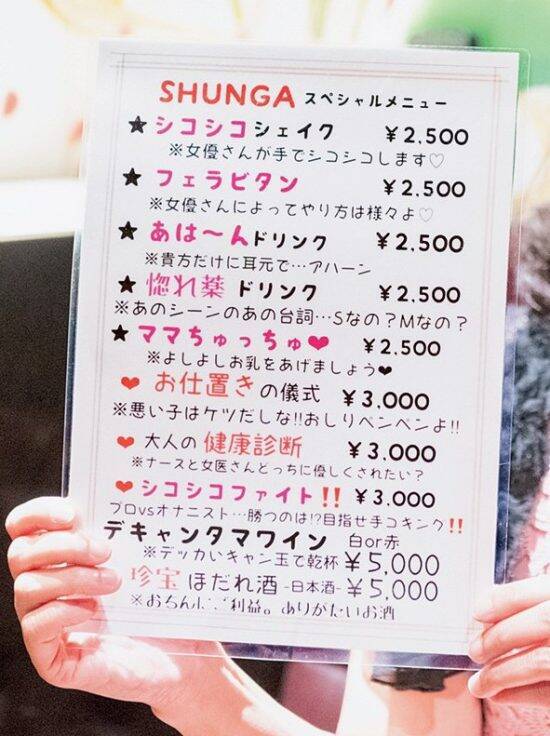 SHUNGA スペシャルメニュー
★シコシコシェイク ¥2,500
※女優さんが手でシコシコします♡
★フェラビタン ¥2,500
※女優さんによってやり方は様々よ♡
★あは〜んドリンク ¥2,500
※貴方だけに耳元で…アハーン
★惚れ薬 ドリンク ¥2,500
※あのシーンのあの台詞…Sなの?Mなの?
★ママちゅっちゅ❤ ¥2,500
※よしよしお乳をあげましょう❤
❤お仕置きの儀式 ¥3,000
※悪い子はケツだしな!!おしりペンペンよ!!
❤大人の健康診断 ¥3,000
※ナースと女医さんどっちに優しくされたい?
❤シコシコファイト!! ¥3,000
プロvsオナニスト…勝つのは!?目指せ手コキング!!
デキャンタマワイン 白or赤
※デッかいキャン玉で乾杯 ¥5,000
珍宝 ほだれ酒 -日本酒- ¥5,000
※おちんに ご利益。ありがたいお酒